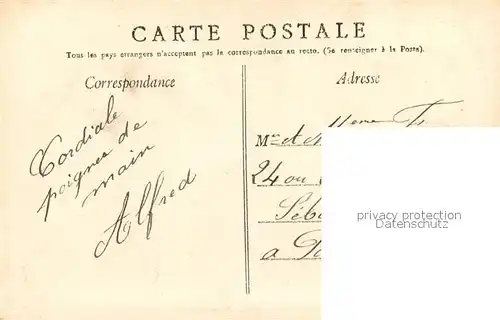 CARTE POSTALE
Tous les pays étrangers n'acceptent pas la correspondance au recto. (Se renseigner à la Poste).
Correspondance
Adresse
Cordiale
poignee de
main
Alfred
24 ou
Séb
a
privacy protection
Datenschutz